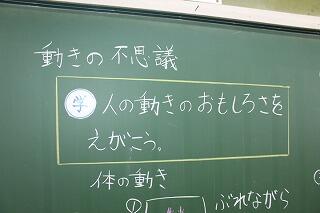 動きの不思議
学 人の動きのおもしろさを
えがこう。
体の動き
① ぶれながら